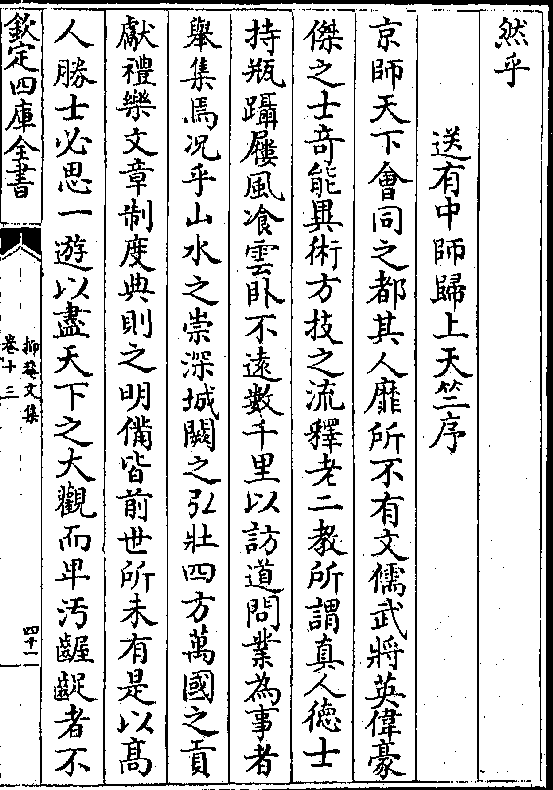 然乎
送有中師歸上天竺序
京師天下會同之都其人靡所不有文儒武將英偉豪
傑之士奇能異術方技之流釋老二教所謂真人德士
持瓶躡屨風飡雲臥不遠數千里以訪道問業為事者
舉集焉况乎山水之崇深城闕之弘壯四方萬國之貢
獻禮樂文章制度典則之明備皆前世所未有是以髙
人勝士必思一遊以盡天下之大觀而卑汚齷齪者不
欽定四庫全書
抑菴文集
卷十三
四十一